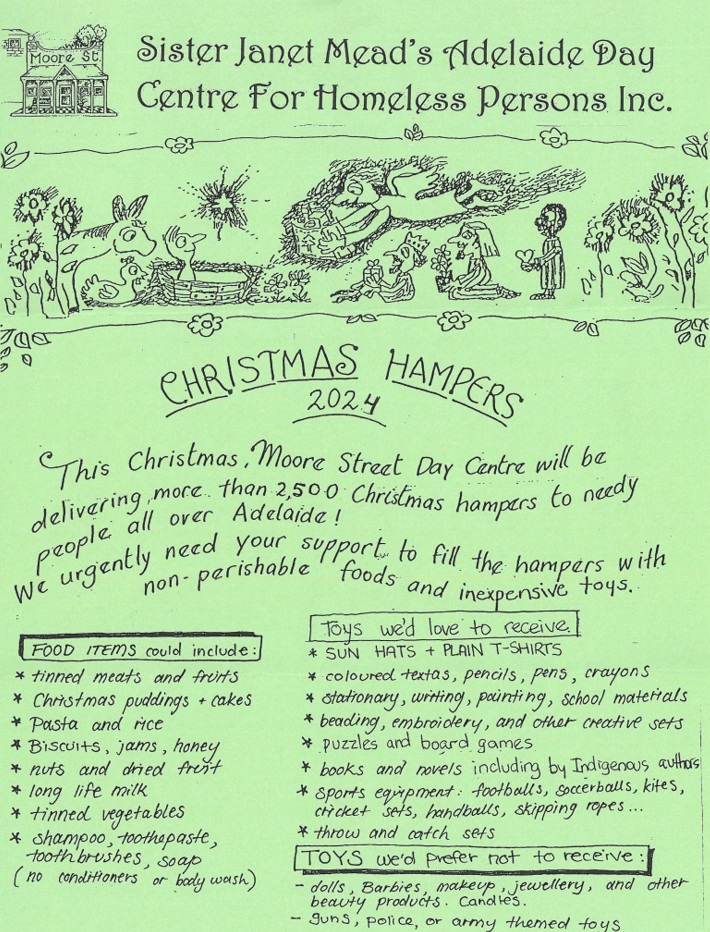 Moore St.
Sister Janet Mead's Adelaide Day
Centre For Homeless Persons Inc.
CHRISTMAS HAMPERS
2024
This Christmas, Moore Street Day Centre will be
delivering more than 2,500 Christmas hampers to needy
people all over Adelaide!
We urgently need your support to fill the hampers with
non-perishable foods and inexpensive toys.
FOOD ITEMS could include:
* tinned meats and fruits
* Christmas puddings + cakes
* Pasta and rice
* Biscuits, jams, honey
* nuts and dried fruit
* long life milk
* tinned vegetables
* shampoo, toothepaste,
toothbrushes, soap
(no conditioners or body wash)
Toys we'd love to receive.
* SUN HATS + PLAIN T-SHIRTS
* coloured textas, pencils, pens, crayons
* stationary, writing, painting, school materials
* beading, embroidery, and other creative sets
* puzzles and board games
* books and novels including by Indigenous authors
* sports equipment: footballs, soccerballs, kites,
cricket sets, handballs, skipping ropes...
* throw and catch sets
TOYS we'd prefer not to receive:
- dolls, Barbies, makeup, jewellery, and other
beauty products. Candles.
- guns, police, or army themed toys